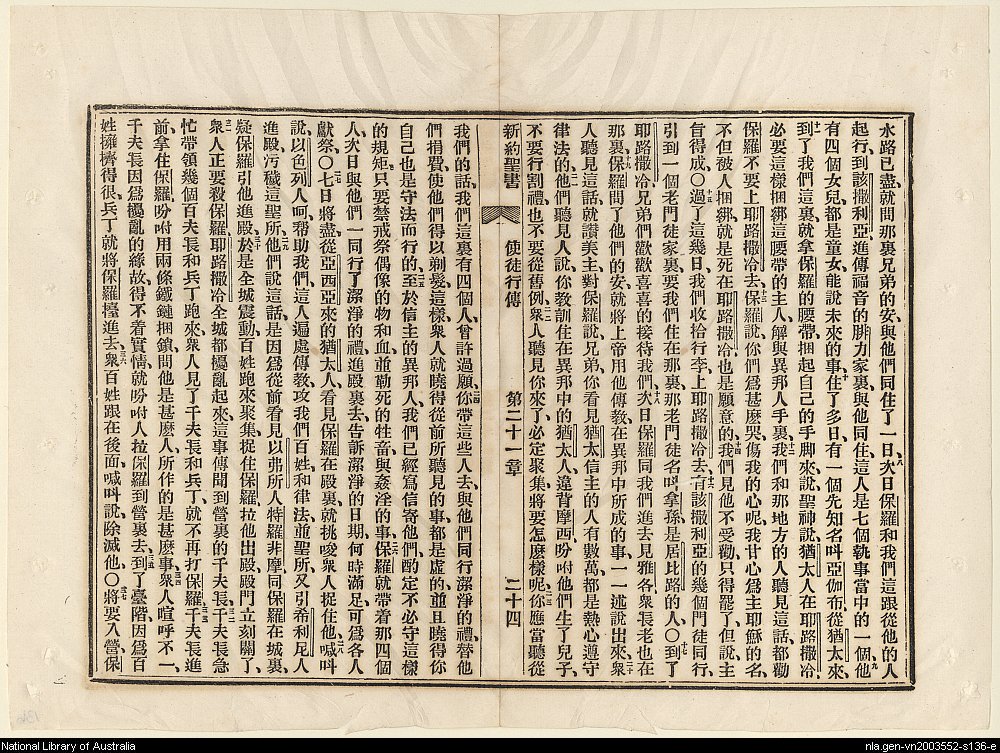 水路已盡、就問那裏兄弟的安、與他們同住了一日、次日保羅和我們這跟從他的人、
起行、到該撒利亞、進傳福音的腓力家裏、與他同住、這人是七個執事當中的一個、他
有四個女兒、都是童女、能說未來的事、住了多日、有一個先知名叫亞伽布、從猶太來、
到了我們這裏、就拿保羅的腰帶、捆起自己的手脚來、說、聖神說、猶太人在耶路撒冷、
必要這樣捆綁這腰帶的主人、解與異邦人手裏、我們和那地方的人、聽見這話、都勸
保羅不要上耶路撒冷去、保羅說、你們爲甚麽哭、傷我的心呢、我甘心爲主耶穌的名、
不但被人捆綁、就是死在耶路撒冷、也是願意的、我們見他不受勸、只得罷了、但說、主
旨得成○過了這幾日、我們收拾行李上耶路撒冷去、有該撒利亞的幾個門徒同行、
引到一個老門徒家裏、要我們住在那裏、那老門徒名叫拿孫、是居比路的人○到了
耶路撒冷、兄弟們歡歡喜喜的接待我們、次日保羅同我們進去見雅各、衆長老也在
那裏、保羅問了他們的安、就將上帝用他傳教、在異邦中所成的事、一一述說出來、衆
人聽見這話、就讚美主、對保羅說、兄弟、你看見猶太信主的人、有數萬、都是熱心遵守
律法的、他們聽見人說、你教訓住在異邦中的猶太人、違背摩西、吩咐他們生了兒子、
不要行割禮、也不要從舊例、衆人聽見你來了、必定聚集、將要怎麽樣呢、你應當聽從
新約聖書 使徒行傳 第二十一章 二十四
我們的話、我們這裏有四個人、曾許過願、你帶這些人去、與他們同行潔淨的禮、替他
們捐費、使他們得以剃髮、這樣、衆人就曉得從前所聽見的事、都是虛的、並且曉得你
自己也是守法而行的、至於信主的異邦人、我們已經寫信寄他們、酌定不必守這樣
的規矩、只要禁戒祭偶像的物、和血、並勒死的牲畜、與姦淫的事、保羅就帶着那四個
人、次日與他們一同行了潔淨的禮、進殿裏去、告訴潔淨的日期、何時滿足、可爲各人
獻祭○七日將盡、從亞西亞來的猶太人、看見保羅在殿裏、就挑唆衆人、捉住他、喊叫
說、以色列人呵、幫助我們、這人遍處傳教、攻我們百姓和律法、並聖所、又引希利尼人
進殿、污穢這聖所、他們說這話、是因爲從前看見以弗所人特羅非摩同保羅在城裏、
疑保羅引他進殿、於是全城震動、百姓跑來聚集、捉住保羅、拉他出殿、殿門立刻關了、
衆人正要殺保羅、耶路撒冷全城都擾亂起來、這事傳聞到營裏的千夫長、千夫長急
忙帶領幾個百夫長和兵丁、跑來、衆人見了千夫長和兵丁、就不再打保羅、千夫長進
前拿住保羅、吩咐用兩條鐵鏈捆鎖、問他是甚麽人、所作的是甚麽事、衆人喧呼不一、
千夫長因爲擾亂的緣故、得不着實情、就吩咐人拉保羅到營裏去、到了臺階、因爲百
姓擁擠得很、兵丁就將保羅擡進去、衆百姓跟在後面、喊叫說、除滅他○將要入營、保
National Library of Australia
nla.gen-vn2003552-s136-e